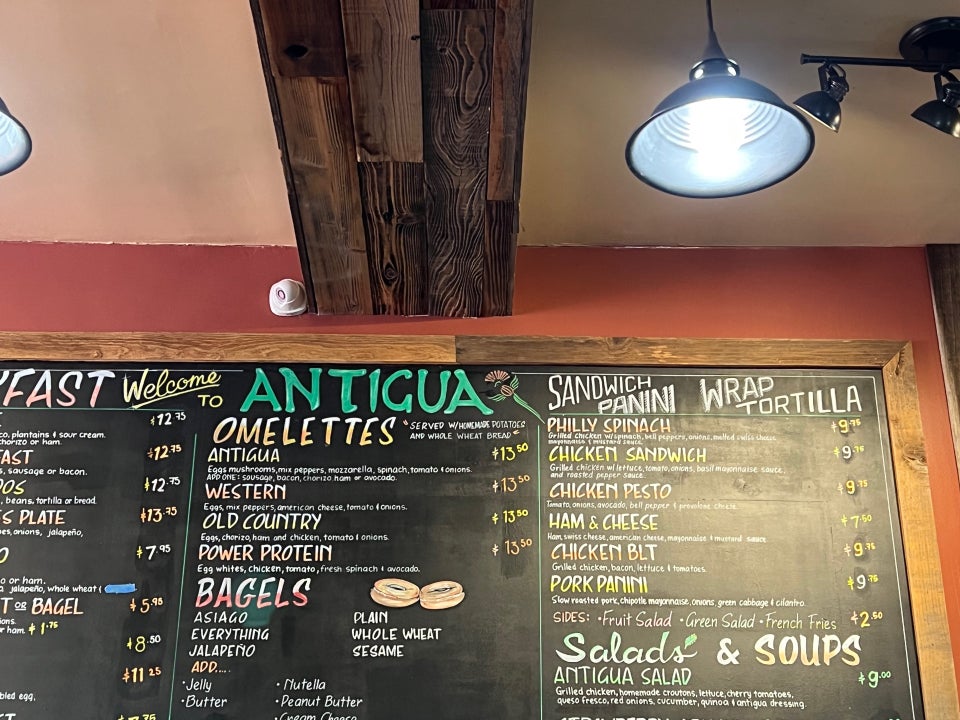 FAST Welcome TO ANTIGUA
$12.75
co, plantains & sour cream.
chorizo or ham.
FAST $12.75
s, sausage or bacon.
OS $12.75
, beans, tortilla or bread.
S PLATE $13.75
onions, jalapeño,
O $7.95
o or ham.
jalapeño, whole wheat (
T OR BAGEL $5.95
ons.
r ham. $1.75
$8.50
$11.25
bled egg,
OMELETTES "SERVED W/HOMEMADE POTATOES
AND WHOLE WHEAT BREAD"
ANTIGUA $13.50
Eggs mushrooms, mix peppers, mozzarella, spinach, tomato & onions.
ADD ONE: sausage, bacon, chorizo, ham or avocado.
WESTERN $13.50
Eggs, mix peppers, american cheese, tomato & onions.
OLD COUNTRY $13.50
Eggs, chorizo, ham and chicken, tomato & onions.
POWER PROTEIN $13.50
Egg whites, chicken, tomato, fresh spinach & avocado.
BAGELS
ASIAGO PLAIN
EVERYTHING WHOLE WHEAT
JALAPEÑO SESAME
ADD....
•Jelly •Nutella
•Butter •Peanut Butter
•Cream Cheese
SANDWICH PANINI WRAP TORTILLA
PHILLY SPINACH $9.75
Grilled chicken w/spinach, bell peppers, onions, melted swiss cheese,
mayonnaise & mustard sauce.
CHICKEN SANDWICH $9.75
Grilled chicken w/ lettuce, tomato, onions, basil mayonnaise sauce,
and roasted pepper sauce.
CHICKEN PESTO $9.75
Tomato, onions, avocado, bell pepper & provolone cheese.
HAM & CHEESE $7.50
Ham, swiss cheese, american cheese, mayonnaise & mustard sauce.
CHICKEN BLT $9.75
Grilled chicken, bacon, lettuce & tomatoes.
PORK PANINI $9.75
Slow roasted pork, chipotle mayonnaise, onions, green cabbage & cilantro.
SIDES: •Fruit Salad •Green Salad •French Fries $2.50
Salads & SOUPS
ANTIGUA SALAD $9.00
Grilled chicken, homemade croutons, lettuce, cherry tomatoes,
queso fresco, red onions, cucumber, quinoa & antigua dressing.